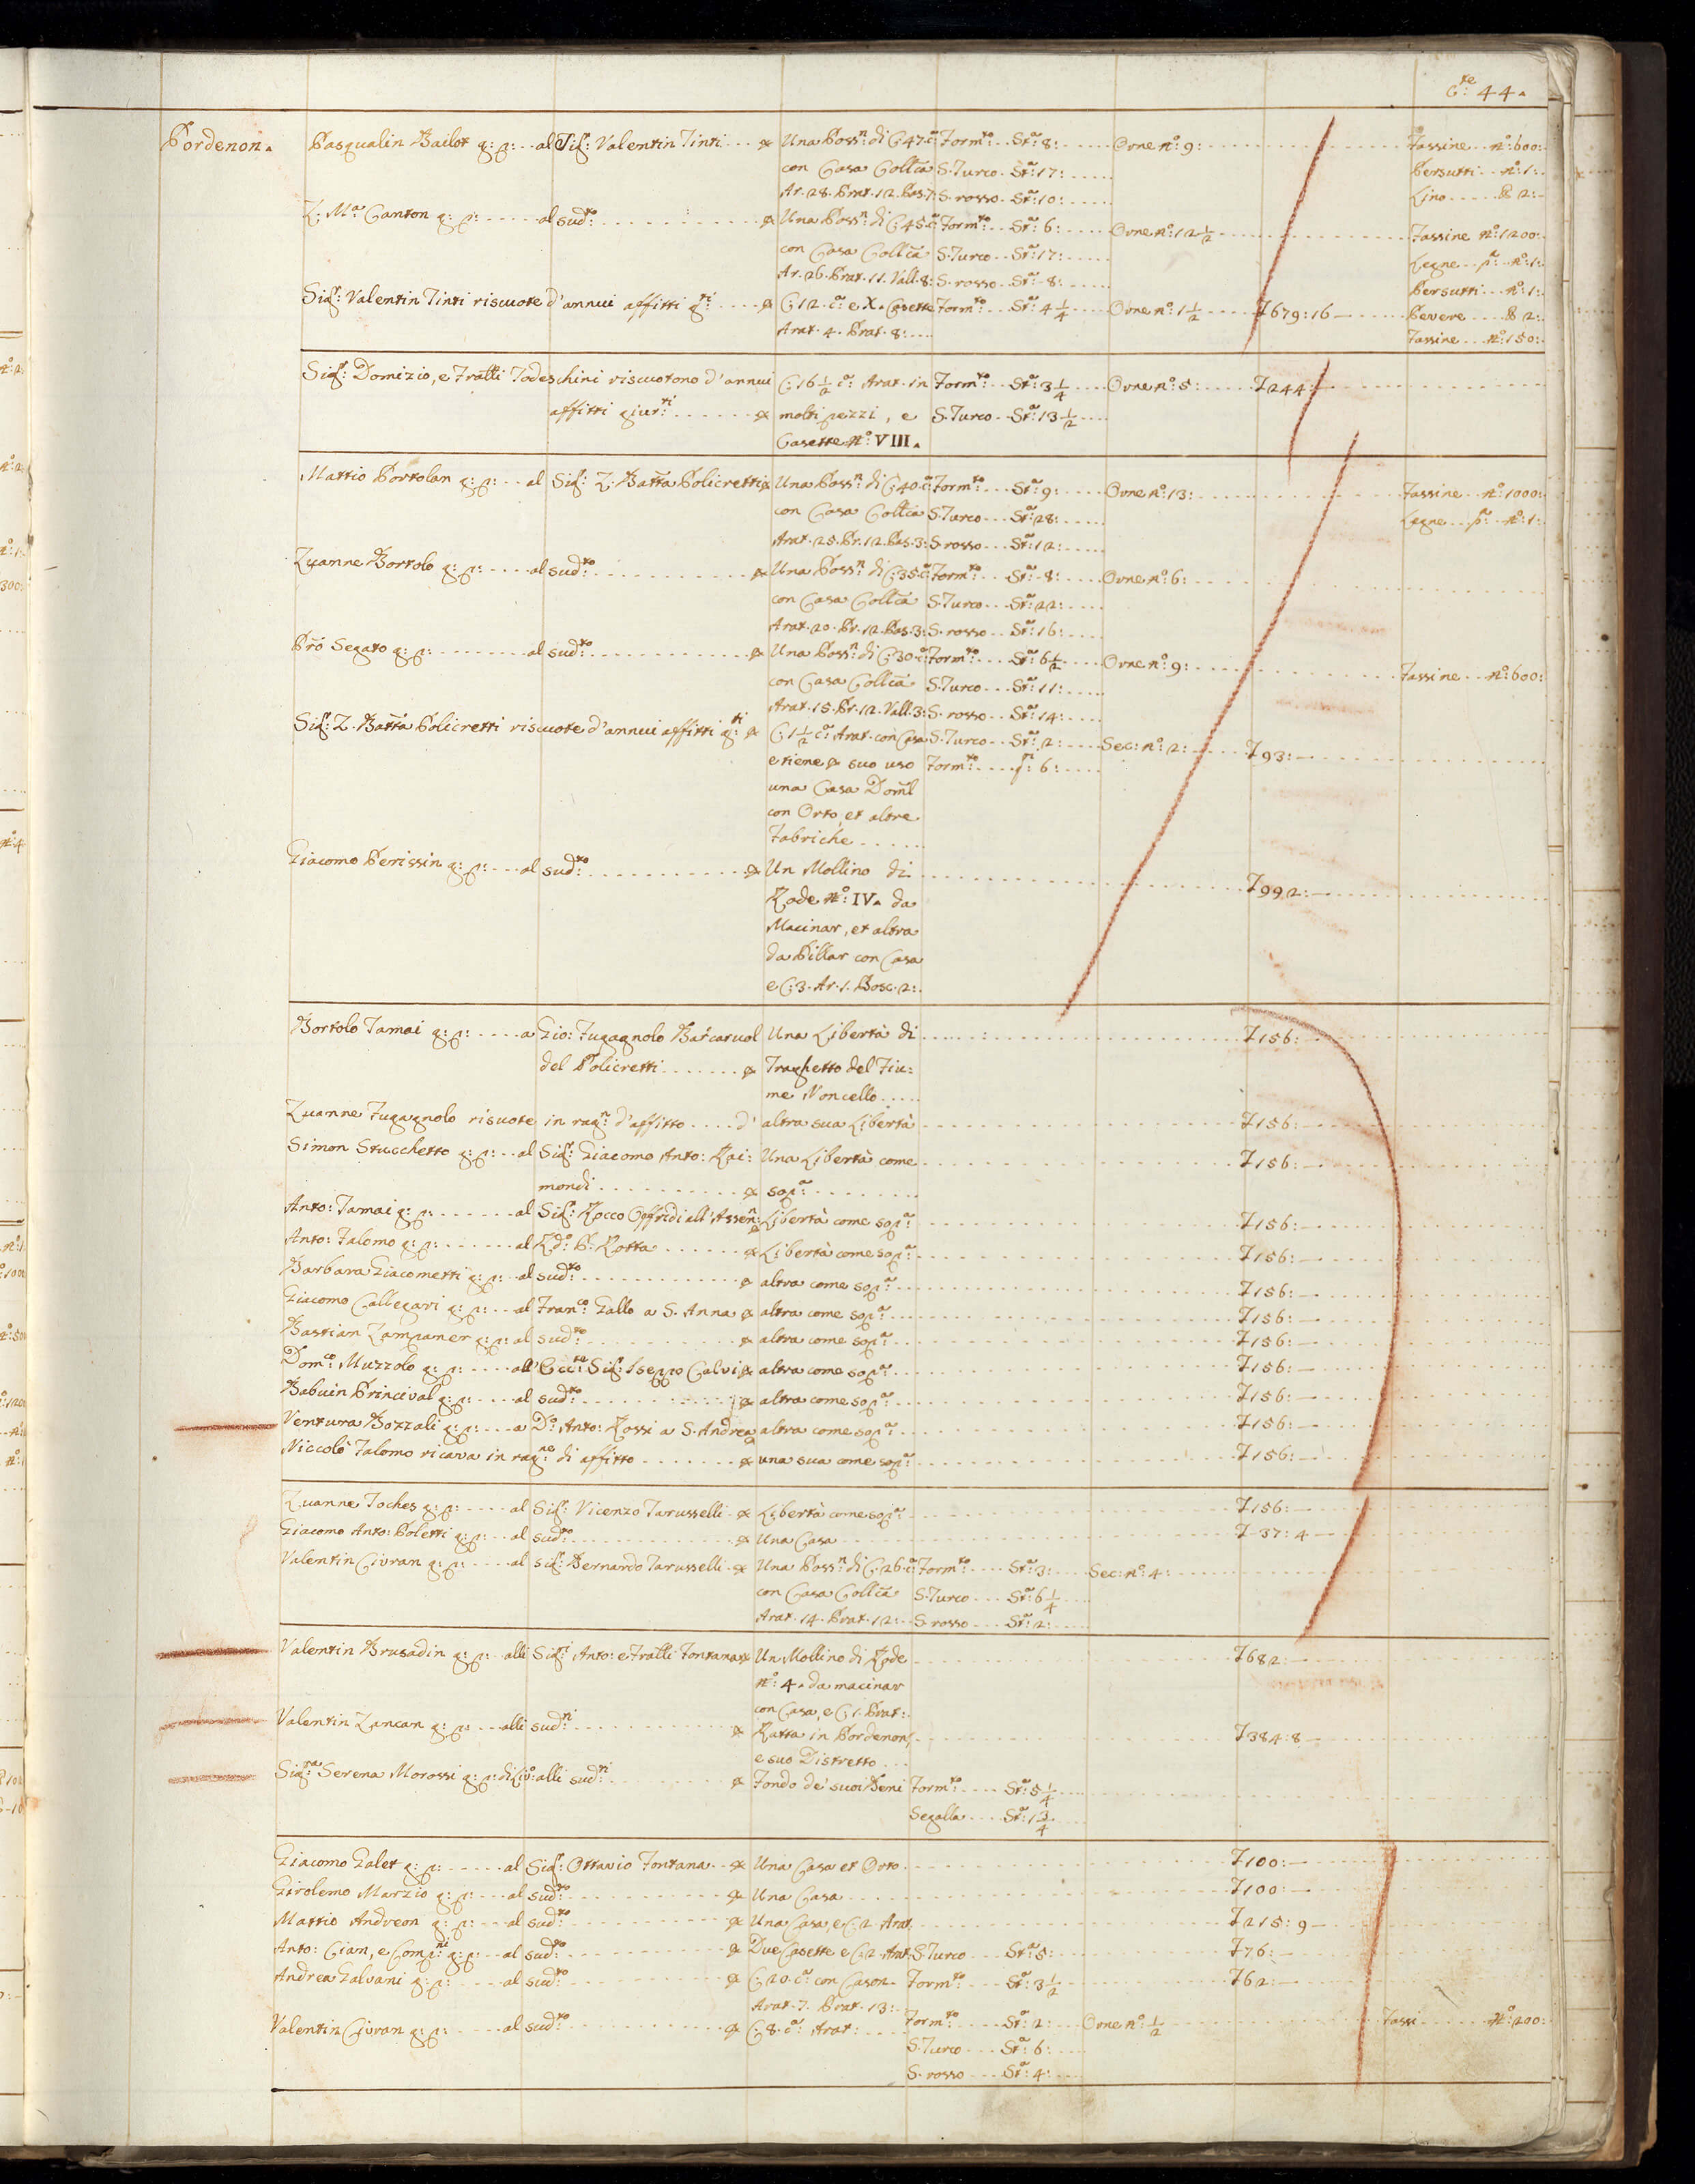 C:te 44.
Pordenon. Pasqualin Bailot g: p: al Sig:r Valentin Tinti Una Poss:n di C: 47 c:a Form:to St:a 8: Orne n:o 9: Fassine n:o 600:
con Casa Coll:ca S. Turco St:a 17: Persutti n:o 1:
Ar. 28. Prat. 12. Pas. 7: S. rosso St:a 10: Lino 2:
Z: M:a Canton g: p: al sud:to Una Poss:n di C: 45 c:a Form:to St:a 6: Orne n:o 12 1/2 Fassine n:o 1200:
con Casa Coll:ca S. Turco St:a 17: Legne n:o 1:
Ar. 26. Prat. 11. Vall. 8: S. rosso St:a 8: Persutti n:o 1:
Sig:r Valentin Tinti riscuote d'annui affitti C: 12 c:a e X. Casette Form:to St:a 4 1/4 Orne n:o 1 1/2 L 679:16 Pevere 2:
Arat. 4. Prat. 8: Fassine n:o 150:
Sig:r Domizio, e Fratti Todeschini riscuotono d'annui C: 16 1/2 c:a Arat. in Form:to St:a 3 1/4 Orne n:o 5: L 244:
affitti giur:ti molti pezzi, e S. Turco St:a 13 1/2
Casette n:o VIII.
Mattio Portolan g: p: al Sig:r Z. Batta Policretti Una Poss:n di C: 40 c:a Form:to St:a 9: Orne n:o 13: Fassine n:o 1000:
con Casa Coll:ca S. Turco St:a 28: Legne n:o 1:
Arat. 25. Pr. 12. Pas. 3: S. rosso St:a 12:
Zuanne Bortolo g: p: al sud:to Una Poss:n di C: 35 c:a Form:to St:a 8: Orne n:o 6:
con Casa Coll:ca S. Turco St:a 22:
Arat. 20. Pr. 12. Pas. 3: S. rosso St:a 16:
Pro Segato g: p: al sud:to Una Poss:n di C: 30 c:a Form:to St:a 6 1/2 Orne n:o 9: Fassine n:o 600:
con Casa Coll:ca S. Turco St:a 11:
Arat. 15. Pr. 12. Vall. 3: S. rosso St:a 14:
Sig:r Z. Batta Policretti riscuote d'annui affitti g:ti C: 1 1/2 c:a Arat. con Casa S. Turco St:a 2: Sec: n:o 2: L 93:
e tiene suo uso Form:to 6:
una Casa Dom:l
con Orto, et altre
Fabriche
Giacomo Perissin g: p: al sud:to Un Mollino di L 992:
Rode n:o IV. da
Macinar, et altra
da Pillar con Casa
e C: 3. Ar. 1. Bosc. 2:
Bortolo Tamai g: p: a Gio: Fugagnolo Barcaruol Una Libertà di L 156:
del Policretti Traghetto del Fiu:
me Noncello
Zuanne Fugagnolo risuote in rag:n d'affitto d' altra sua Libertà L 156:
Simon Stucchetto g: p: al Sig:r Giacomo Anto: Rai: Una Libertà come L 156:
mondi sop:a
Anto: Tamai g: p: al Sig:r Rocco Offredi all' Assen: Libertà come sop:a L 156:
Anto: Falomo g: p: al R:do P. Rotta Libertà come sop:a L 156:
Barbara Giacometti g: p: al sud:to altra come sop:a L 156:
Giacomo Callegari g: p: al Fran:co Gallo a S. Anna altra come sop:a L 156:
Bastian Zampaner g: p: al sud:to altra come sop:a L 156:
Dom:co Muzzolo g: p: all' Ecc:te Sig:r Iseppo Calvi altra come sop:a L 156:
Babuin Princival g: p: al sud:to altra come sop:a L 156:
Ventura Bozzali g: p: a D:o Anto: Rossi a S. Andrea altra come sop:a L 156:
Niccolò Falomo ricava in rag:ne di affitto una sua come sop:a L 156:
Zuanne Toches g: p: al Sig:r Vicenzo Tarusselli Libertà come sop:a L 156:
Giacomo Anto: Poletti g: p: al sud:to Una Casa L 37:4
Valentin Civran g: p: al Sig:r Bernardo Tarusselli Una Poss:n di C: 26 c:a Form:to St:a 3: Sec: n:o 4:
con Casa Coll:ca S. Turco St:a 6 1/4
Arat. 14. Prat. 12: S. rosso St:a 2:
Valentin Brusadin g: p: alli Sig:ri Anto: e Fratti Fontana Un Mollino di Rode L 682:
n:o 4. da macinar
con Casa, e C: 1. Prat:
Valentin Zancan g: p: alli sud:ti Ratta in Pordenon, L 384:8
e suo Distretto
Sig:ra Serena Morossi g: p: di liv:o alli sud:ti Fondo de' suoi Beni Form:to St:a 5 1/4
Segalla St:a 1 3/4
Giacomo Galet g: p: al Sig:r Ottavio Fontana Una Casa et Orto L 100:
Girolemo Marzio g: p: al sud:to Una Casa L 100:
Mattio Andreon g: p: al sud:to Una Casa, e C: 2 Arat. L 215:9
Anto: Cian, e Comp:ni g: p: al sud:to Due Casette e C: 2 Arat. S. Turco St:a 5: L 76:
Andrea Galvani g: p: al sud:to C: 20 c:a con Cason Form:to St:a 3 1/2 L 62:
Arat. 7. Prat. 13:
Valentin Civran g: p: al sud:to C: 8. c:a Arat: Form:to St:a 2: Orne n:o 1/2 Fassi n:o 200:
S. Turco St:a 6:
S. rosso St:a 4: